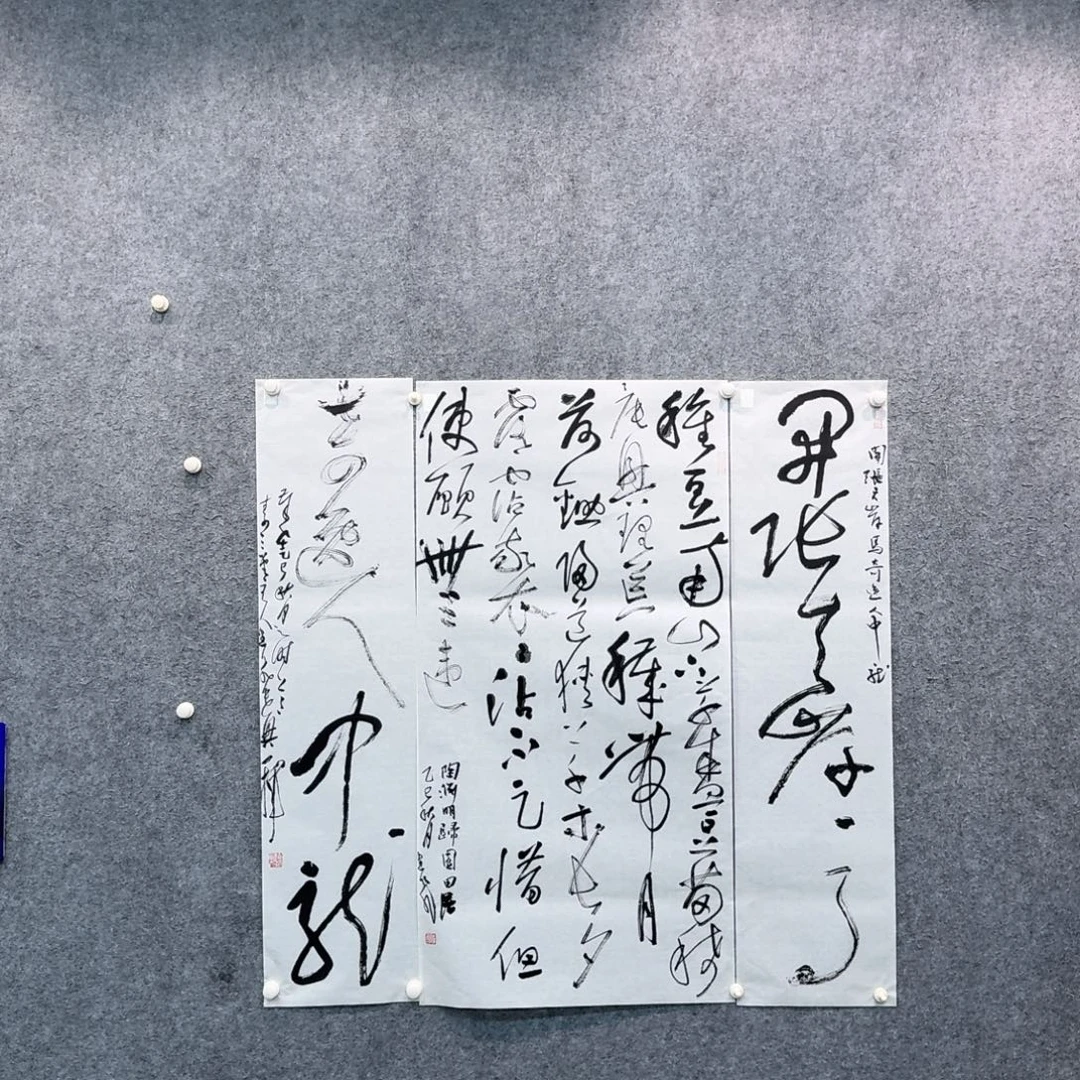 開張天岸馬奇逸人中龍
開張天岸馬
種豆南山下草盛豆苗稀
晨興理荒穢帶月
荷鋤歸道狹草木長夕
露沾我衣衣沾不足惜但
使願無違
陶淵明歸園田居
乙巳秋月
奇逸人中龍
乙巳秋月